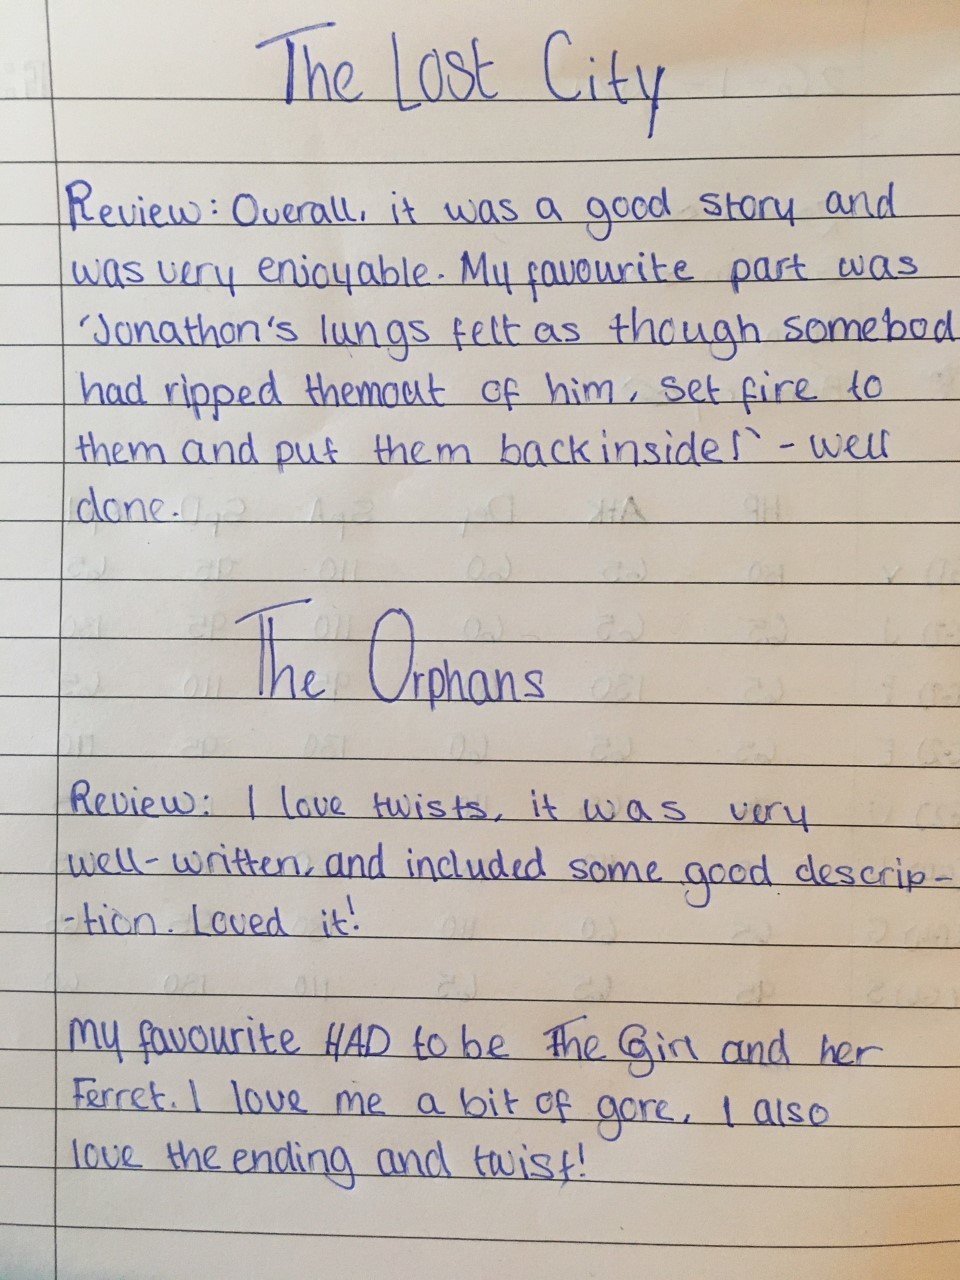 The Lost City
Review: Overall, it was a good story and
was very enjoyable. My favourite part was
'Jonathon's lungs felt as though somebod
had ripped themout of him, set fire to
them and put them back inside!' - well
done.
The Orphans
Review: I love twists, it was very
well-written, and included some good descrip-
-tion. Loved it!
My favourite HAD to be The Girl and her
Ferret. I love me a bit of gore, I also
love the ending and twist!